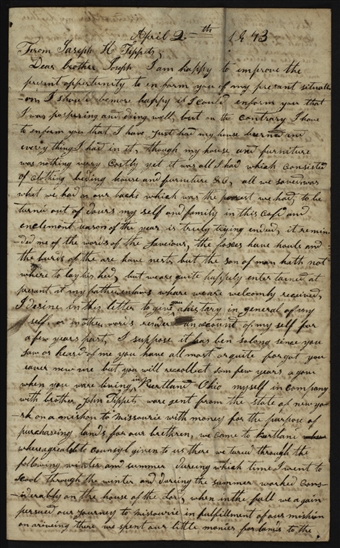 April 2 th 1843
From Joseph H Tippets
Dear brother Joseph I am happy to improve the
present opportunity to inform you of my present situati
on I should be more happy if I could inform you that
I was prospering and doing well, but on the contrary I have
to inform you that I have Just had my house burned and
every thing I had in it, though my house and furniture
was nothing very Costly yet it was all I had which consisted
of Clothing beding house and furniture &c, all we saved was
what we had on our backs which was the poorest we had, to be
turned out of doors my self and family in this Cold and
enclement season of the year is truly trying indeed, it remin
ded me of the words of the Saviour, the foxes have houls and
the burds of the are have nests but the son of man hath not
where to lay his head, but we are quite happily entertained at
present at my father inlaws where we are welcomly received,
I desire in this letter to give a history in general of my
self, or in other words render an account of my self for
a few years past, I suppose it has ben so long since you
saw or heard of me you have all most or quite forgot you
ever new me but you will recollect some few years agone
when you were living in Kirtland Ohio my self in company
with brother John Tippets were sent from the State of new york
on a mission to missourie with money for the purpose of
purchasing lands for our brethren, we came to kirtland
whereupon the Councsyl given to us there we tared through the
following winter and summer dureing which time I went to
Scool through the winter and dureing the summer worked Cons
iderably on the house of the Lord, when in the fall we again
pursued our journey to missourie in fulfillment of our mission
on ariveing there we spent our little monies for lands to the